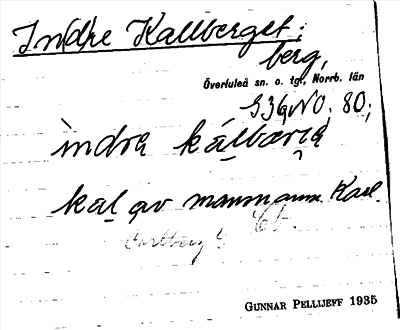 Indre Kallberget;
berg,
Överluleå sn. o. tgl., Norrb. län
S36NO, 80;
indra kálbærıa
kal av mansnamn Karl.
GUNNAR PELLIJEFF 1935